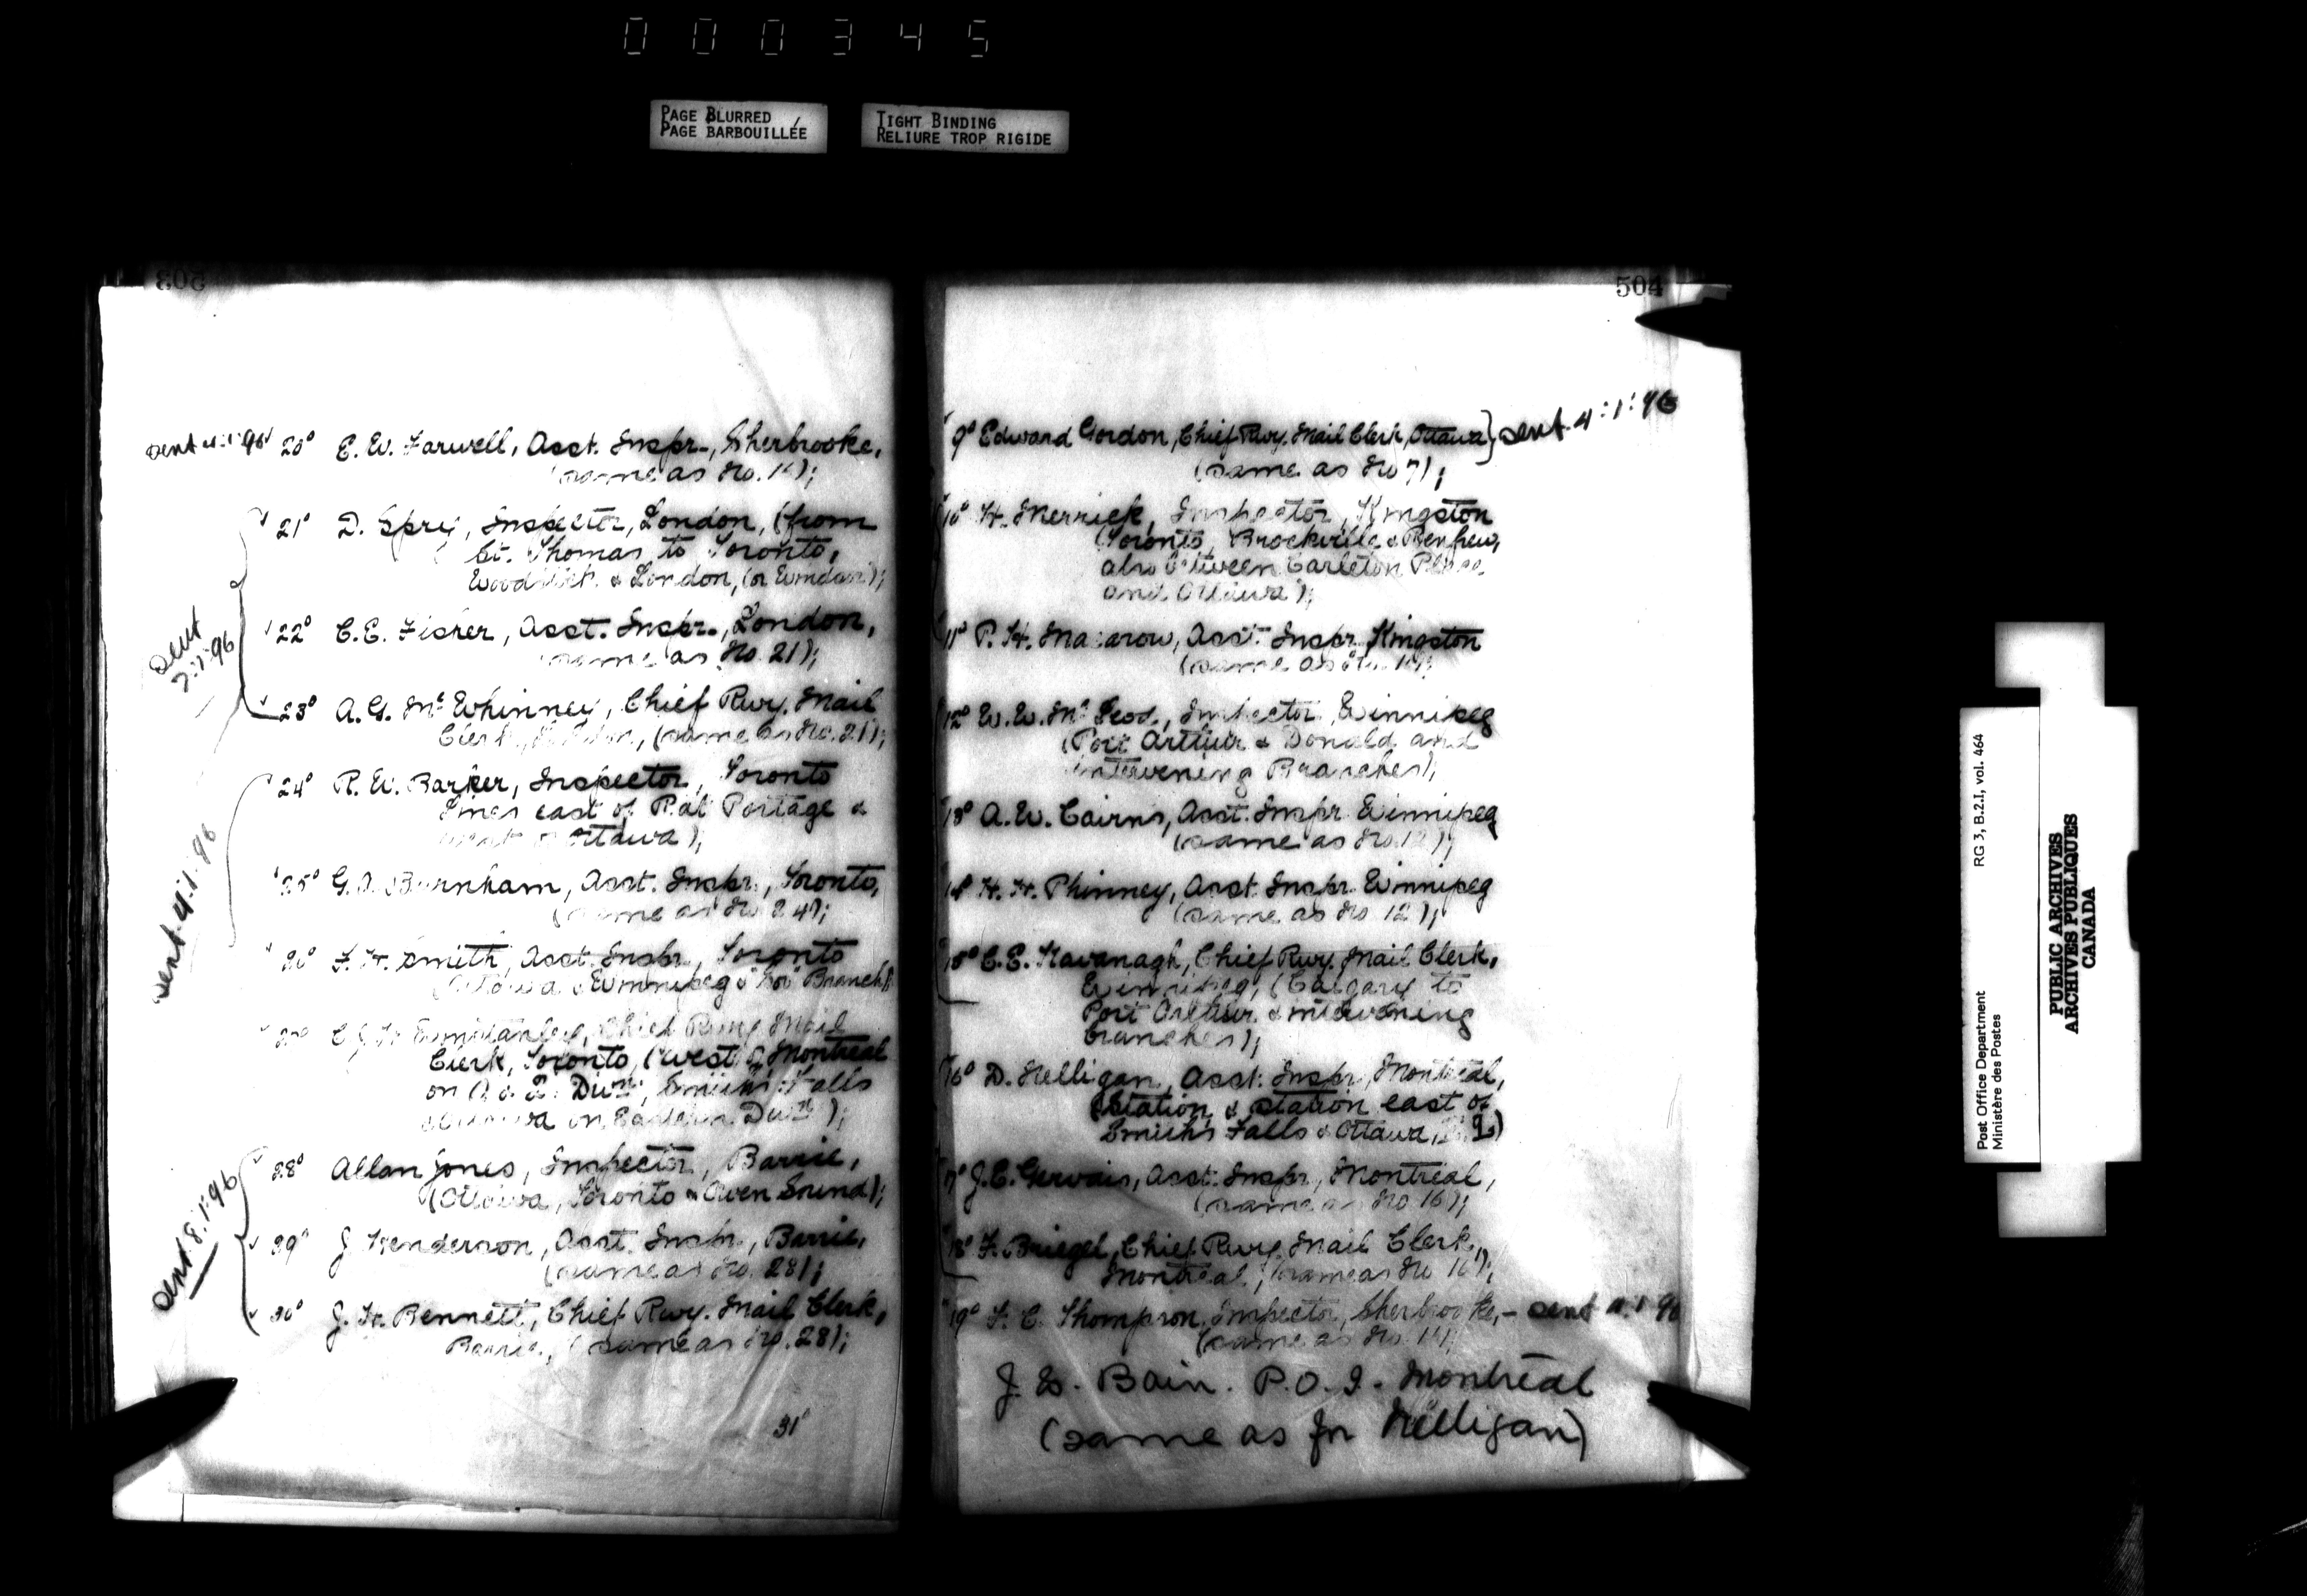 000345
PAGE BLURRED
PAGE BARBOUILLÉE
TIGHT BINDING
RELIURE TROP RIGIDE
503
sent 4:1:96 20° E. W. Farwell, Asst. Inspr., Sherbrooke,
(same as No. );
21° D. Spry, Inspector, London, (from
St. Thomas to Toronto,
Woodstock & London, (or Windsor);
22° C. E. Fisher, Asst. Inspr., London,
(same as No. 21);
sent 7:1:96
23° A. G. McWhinney, Chief Rwy. Mail
Clerk, London, (same as No. 21);
24° R. W. Barker, Inspector, Toronto
Lines east of Rat Portage &
west of Ottawa);
25° G. A. Burnham, Asst. Inspr., Toronto,
(same as No. 24);
sent 4:1:96
26° F. H. Smith, Asst. Inspr., Toronto
(Ottawa & Winnipeg & Branch);
Chief Rwy. Mail
Clerk, Toronto, (west of Montreal
on O. & Q. Divn; Smiths Falls
& Ottawa on Eastern Divn);
28° Allan Jones, Inspector, Barrie,
(Ottawa, Toronto & Owen Sound);
sent 8:1:96
29° J. Henderson, Asst. Inspr., Barrie,
(same as No. 28);
30° J. H. Bennett, Chief Rwy. Mail Clerk,
Barrie, (same as No. 28);
31°
504
9° Edward Gordon, Chief Rwy. Mail Clerk, Ottawa} sent 4:1:96
(same as No 7);
10° H. Merrick, Inspector, Kingston
(Toronto, Brockville & Renfrew,
also between Carleton Place
and Ottawa);
11° P. H. Macarow, Asst. Inspr. Kingston
(same as No. 10);
12° W. W. McLeod, Inspector, Winnipeg
(Port Arthur & Donald and
intervening Branches);
13° A. W. Cairns, Asst. Inspr. Winnipeg
(same as No. 12);
14° H. H. Phinney, Asst. Inspr. Winnipeg
(same as No 12);
15° C. E. Kavanagh, Chief Rwy. Mail Clerk,
Winnipeg, (Calgary to
Port Arthur & intervening
branches);
16° D. Nelligan, Asst. Inspr., Montreal,
(Station & station east of
Smiths Falls & Ottawa,
17° J. E. Gervais, Asst. Inspr., Montreal,
(same as No 16);
18° F. Briegel, Chief Rwy. Mail Clerk,
Montreal, (same as No 16);
19° F. C. Thompson, Inspector, Sherbrooke, – sent 4:1:96
(same as No. );
J. E. Bain. P.O.I. Montreal
(same as for Nelligan)
RG 3, B.2.I, vol. 464
Post Office Department
Ministère des Postes
PUBLIC ARCHIVES
ARCHIVES PUBLIQUES
CANADA